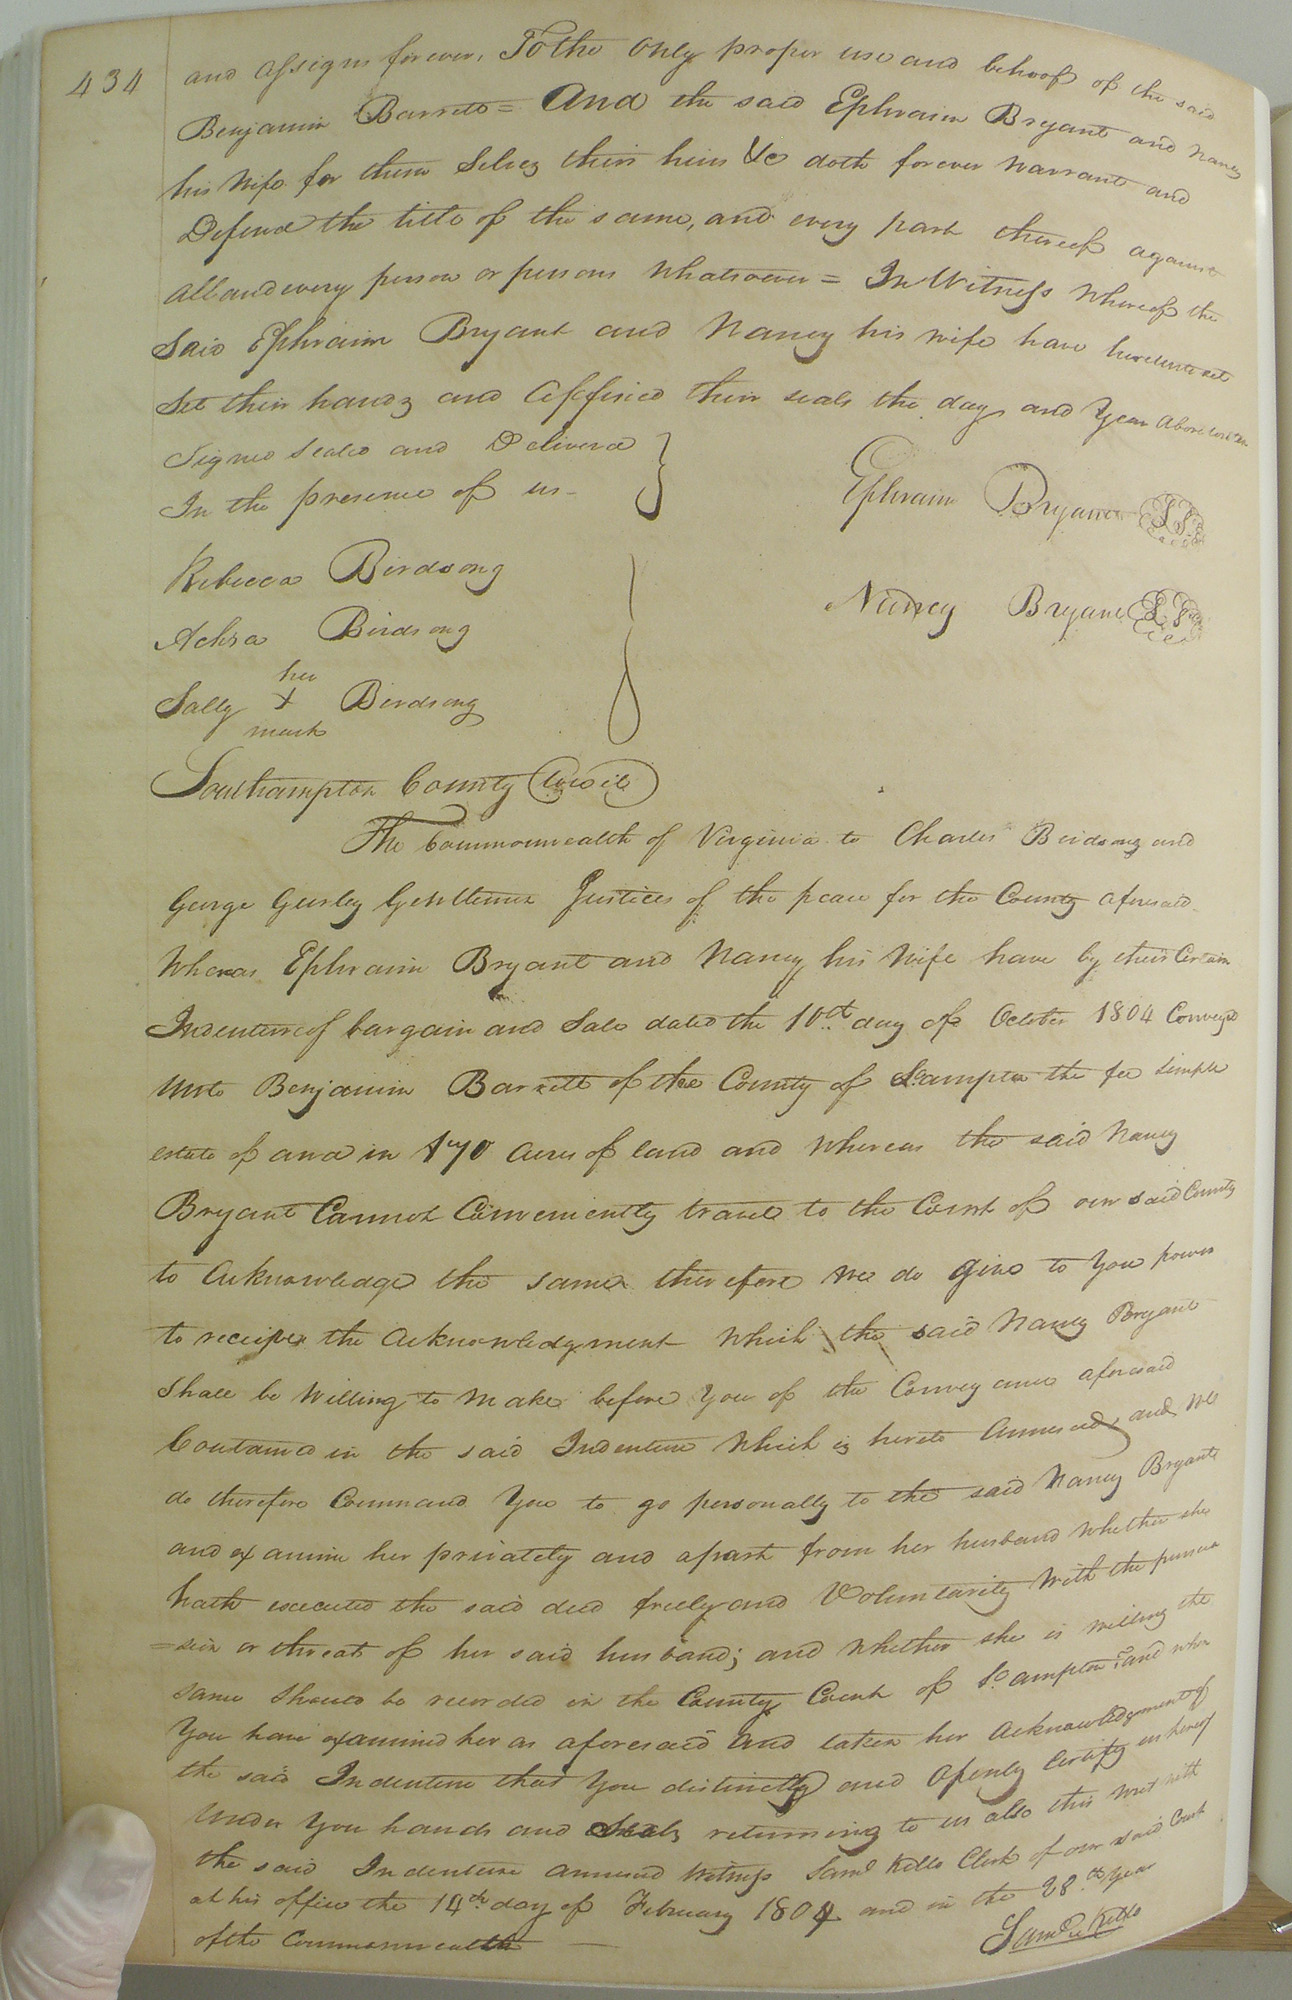 434
and assigns forever, To the only proper use and behoof of the said
Benjamin Barrett = And the said Ephraim Bryant and Nancy
his Wife for them Selves their heirs &c doth forever warrant and
Defend the title of the same, and every part thereof against
All and every person or persons Whatsoever = In Witness whereof the
Said Ephraim Bryant and Nancy his wife have hereunto set
Set their hands and Affixed their seals the day and Year above written
Signed Sealed and Deliverd
In the presence of us -
Ephraim Bryant LS
Rebecca Birdsong
Nancy Bryant LS
Achsa Birdsong
her
Sally X Birdsong
mark
Southampton County
The Commonwealth of Virginia to Charles Birdsong and
George Gurley Gentlemen Justices of the peace for the County aforesaid
Whereas Ephraim Bryant and Nancy his Wife have by their Certain
Indenture of bargain and Sale dated the 10th day of October 1804 Conveyed
Unto Benjamin Barrett of the County of So.ampton the fee simple
estate of and in 170 acres of land and whereas the said Nancy
Bryant Cannot Conveniently travel to the Court of our said County
to Acknowledge the same therefore we do give to You power
to receive the Acknowledgment Which the said Nancy Bryant
Shall be Willing to make before You of the Conveyance aforesaid
Contained in the said Indenture Which is hereto Annexed, and we
do therefore Command You to go personally to the said Nancy Bryant
and examine her privately and apart from her husband whether she
hath executed the said deed freely and Voluntarily with the
or threats of her said husband; and whether she is willing the
same should be recorded in the County Court of So.ampton: and when
You have examined her as aforesaid and taken her Acknowledgment of
the said Indenture that You distinctly and Openly Certify us hereof
Under You hands and Seals returning to us also this writ with
the said Indenture annexed Witness Saml Kello Clerk of our said Court
at his office the 14th day of February 1804 and in the 28th Year
of the Commonwealth
Saml Kello